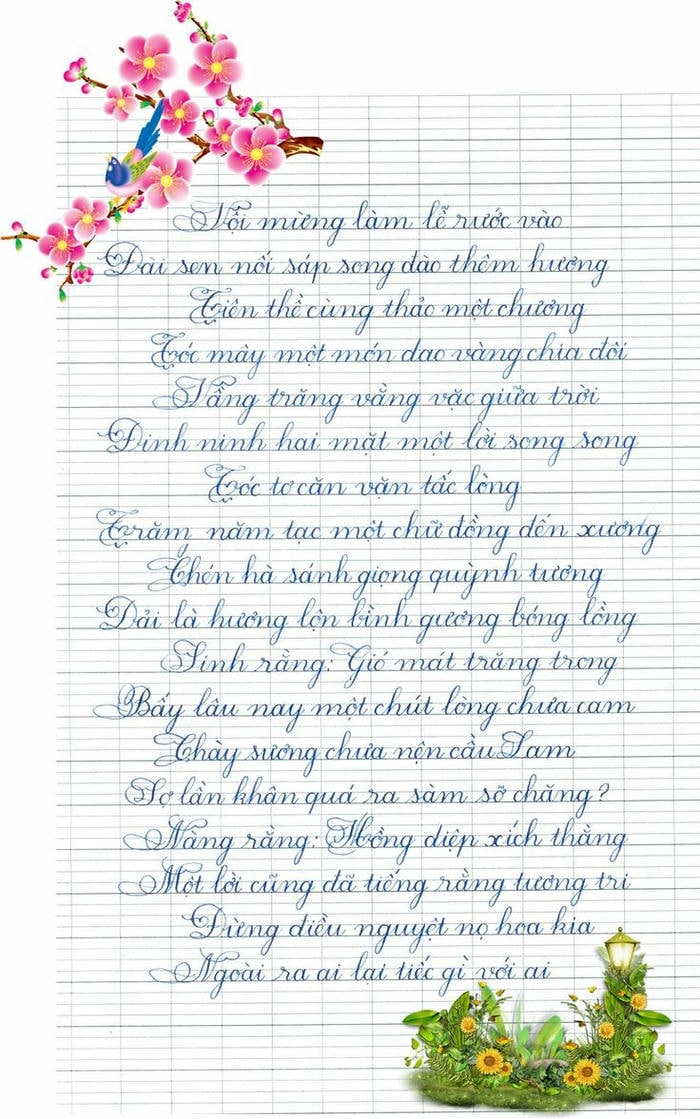 Vội mừng làm lễ rước vào
Đài sen nối sáp song đào thêm hương
Tiên thề cùng thảo một chương
Tóc mây một món dao vàng chia đôi
Vầng trăng vằng vặc giữa trời
Đinh ninh hai mặt một lời song song
Tóc tơ căn vặn tấc lòng
Trăm năm tạc một chữ đồng đến xương
Chén hà sánh giọng quỳnh tương
Dải là hương lộn bình gương bóng lồng
Sinh rằng: Gió mát trăng trong
Bấy lâu nay một chút lòng chưa cam
Chày sương chưa nện cầu Lam
Sợ lần khân quá ra sàm sỡ chăng?
Nàng rằng: Hồng diệp xích thằng
Một lời cũng đã tiếng rằng tương tri
Đừng điều nguyệt nọ hoa kia
Ngoài ra ai lại tiếc gì với ai